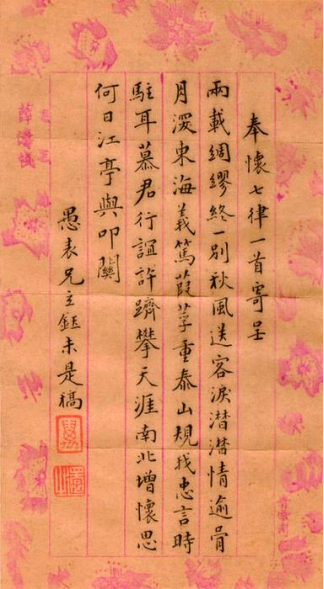 奉懷七律一首寄呈
兩載綢繆終一別秋風送客淚潸潸情逾骨
月深東海義篤葭莩重泰山規我忠言時
駐耳慕君行誼許躋攀天涯南北增懷思
何日江亭與叩關
愚表兄立鈺未是稿